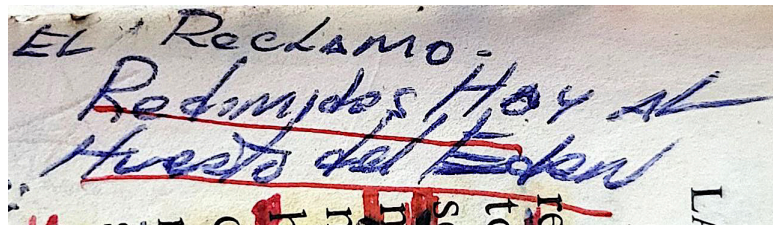 EL Reclamo.
Redimidos Hoy al
Huerto del Eden